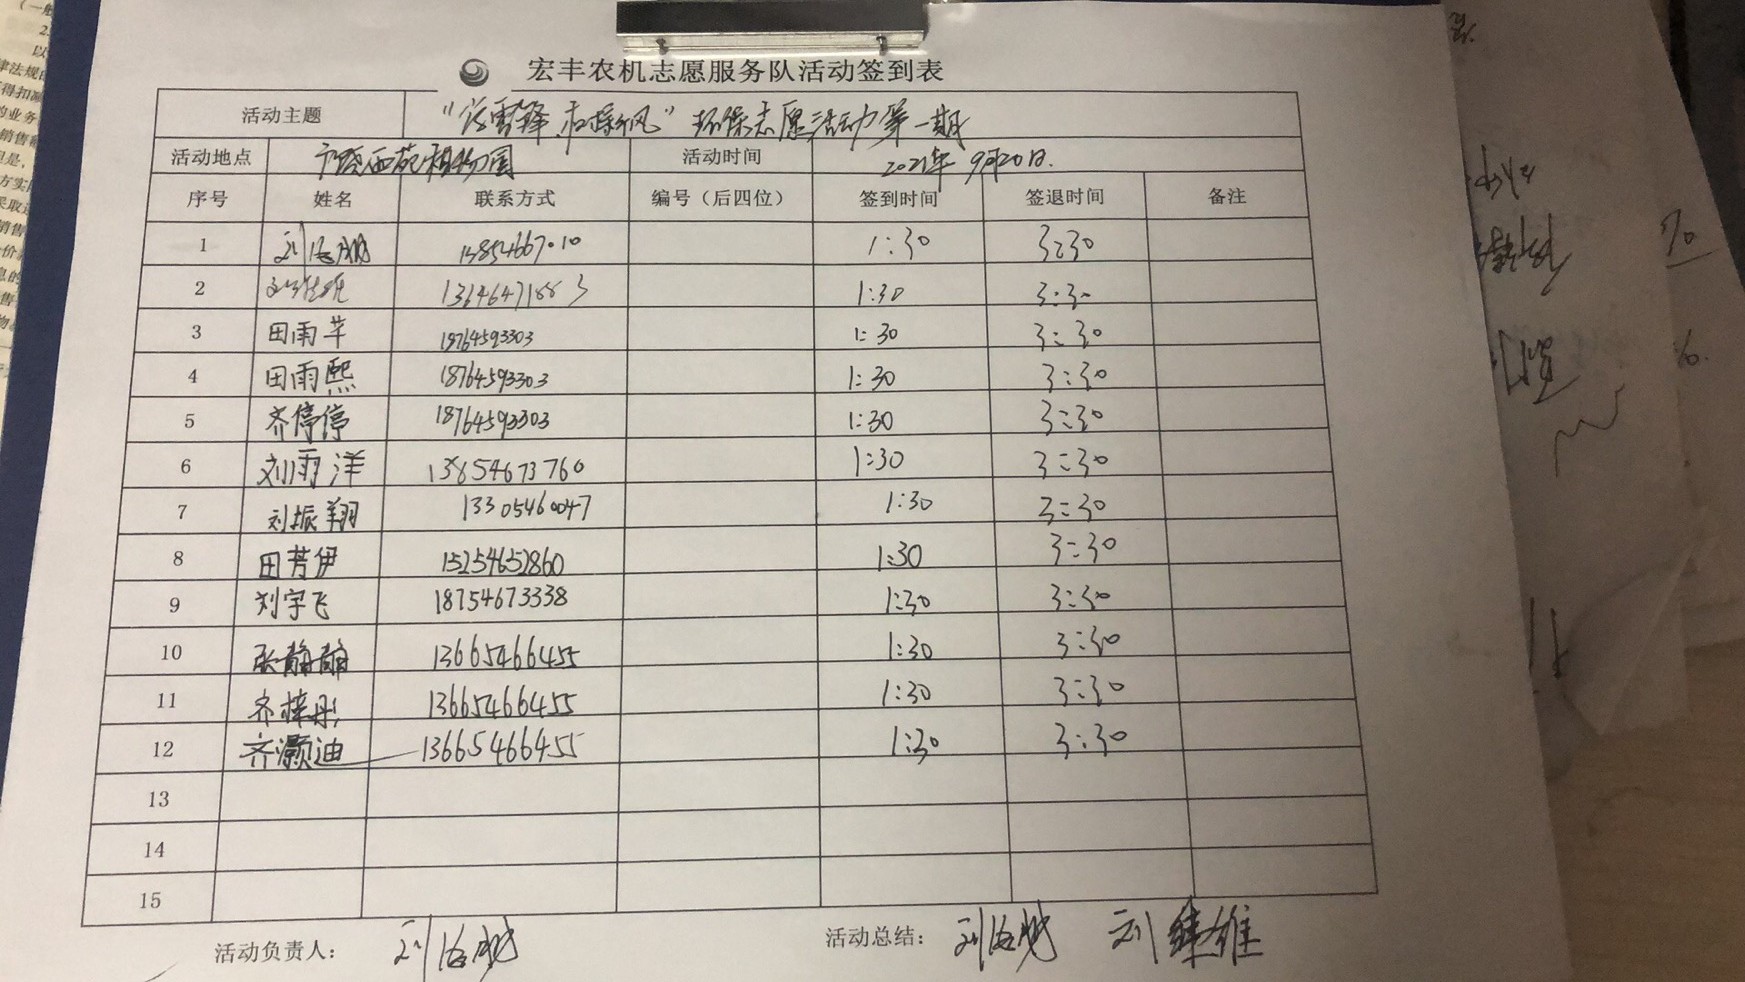 宏丰农机志愿服务队活动签到表
活动主题 环保志愿活动第一期
活动地点 植物园 活动时间 2021年9月20日.
序号 姓名 联系方式 编号（后四位） 签到时间 签退时间 备注
1 1:30 3:30
2 1:30 3:30
3 田雨芊 18764593303 1:30 3:30
4 田雨熙 18764593303 1:30 3:30
5 齐停停 18764593303 1:30 3:30
6 刘雨洋 13854673760 1:30 3:30
7 刘振翔 13305460047 1:30 3:30
8 田芳伊 15254652860 1:30 3:30
9 刘宇飞 18754673338 1:30 3:30
10 张静静 13665466455 1:30 3:30
11 齐梓彤 13665466455 1:30 3:30
12 齐灏迪 13665466455 1:30 3:30
13
14
15
活动负责人： 活动总结：